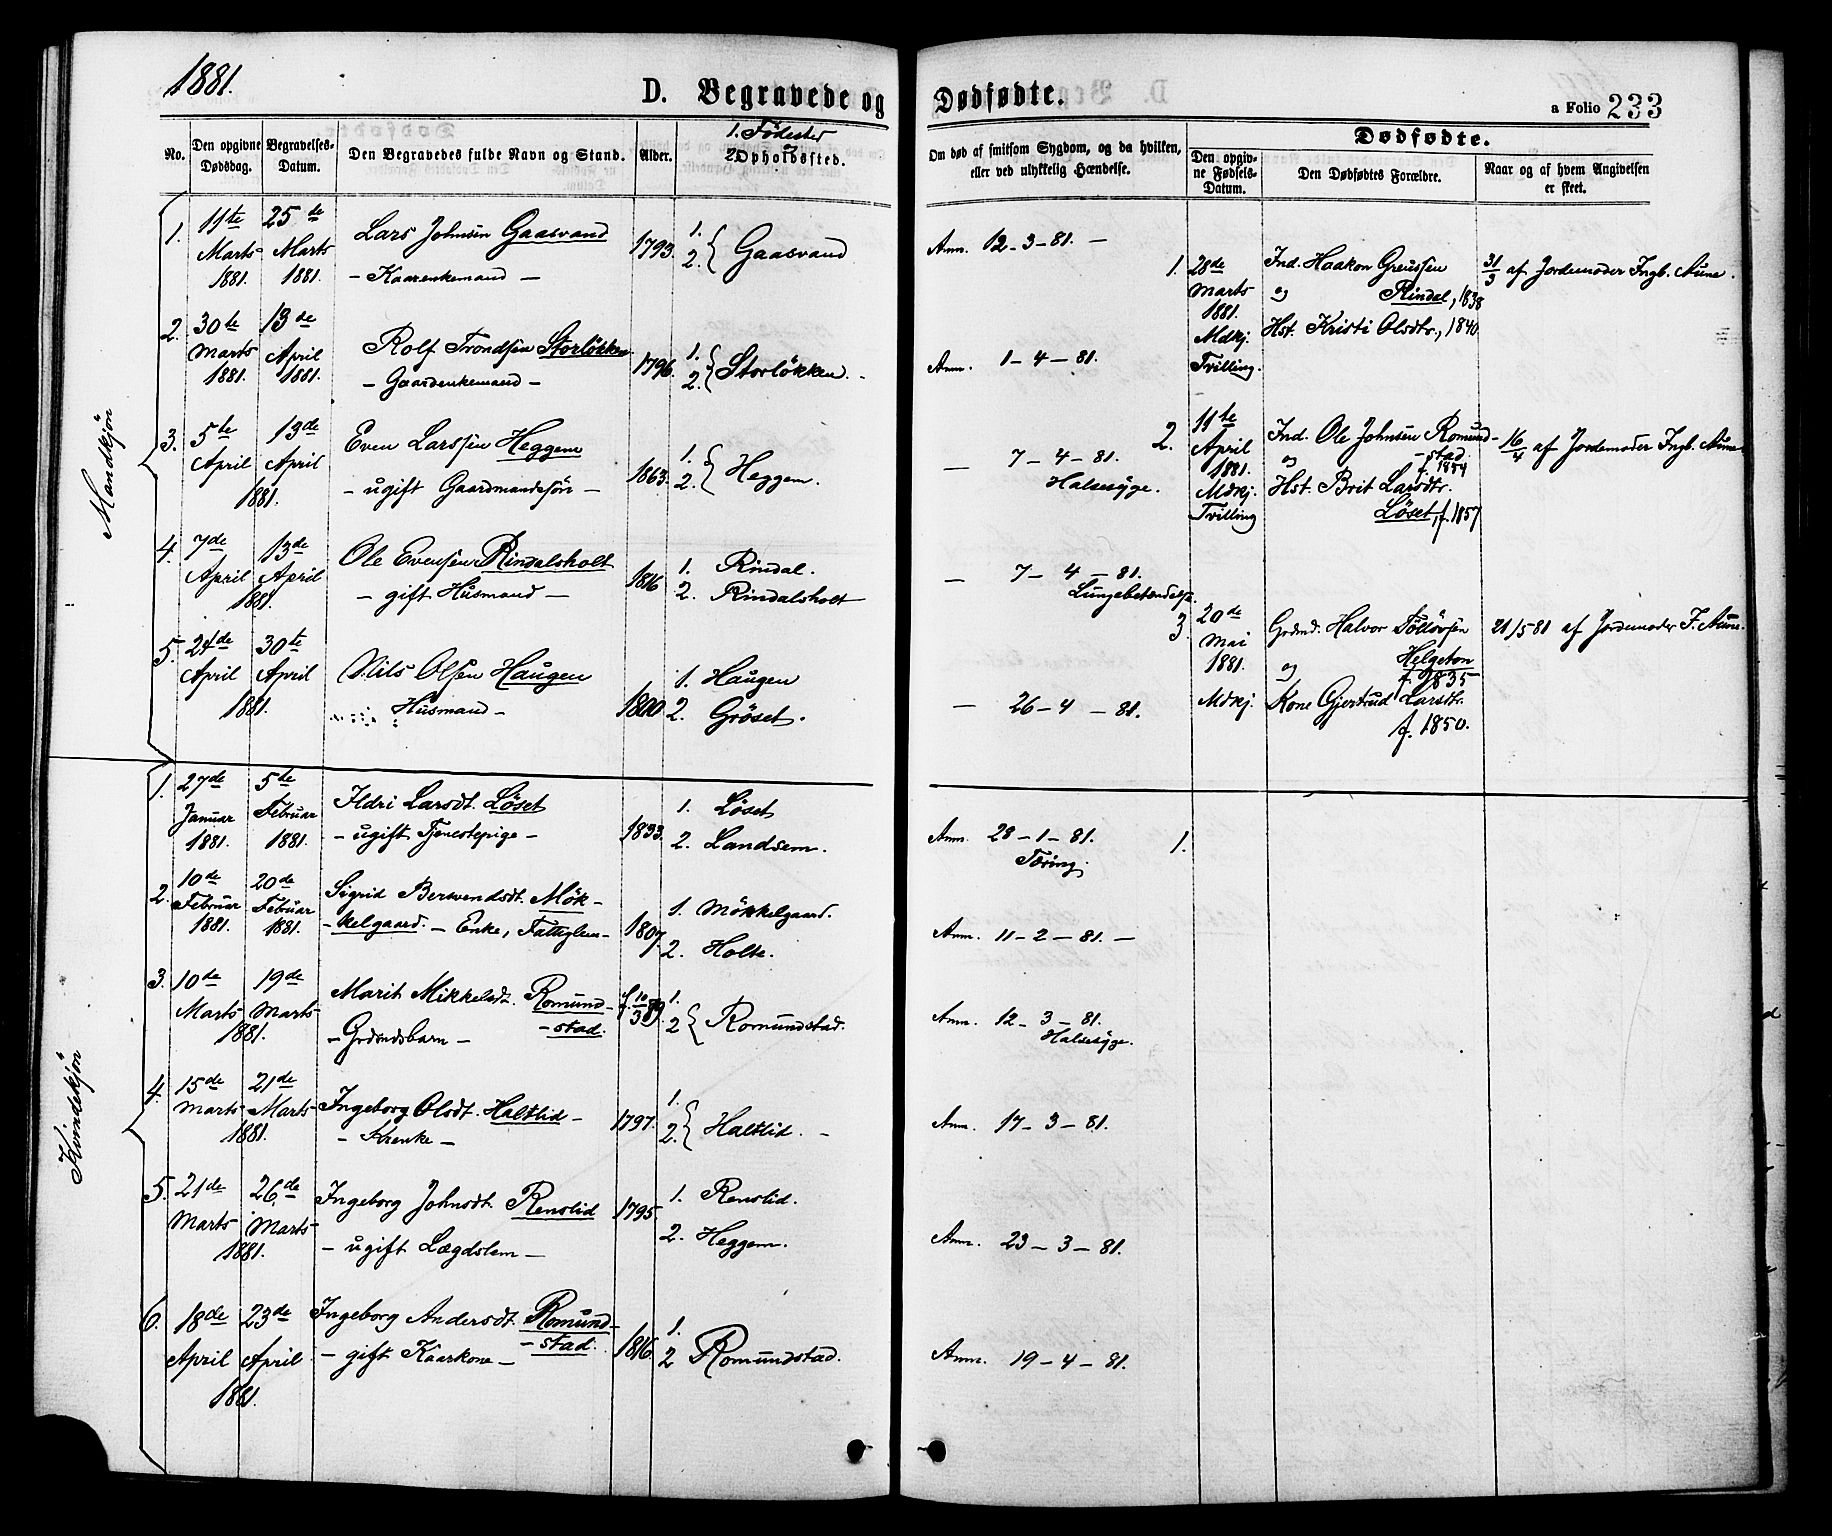 1881.
D. Begravede og Dødfødte.
a Folio 233
No.
Den opgivne Dødsdag.
Begravelses-Datum.
Den Begravedes fulde Navn og Stand.
Alder.
1. Fødested
2. Opholdssted.
Om død af smitsom Sygdom, og da hvilken, eller ved ulykkelig Hændelse.
Dødfødte.
Den opgivne Fødsels-Datum.
Den Dødfødtes Forældre.
Naar og af hvem Angivelsen er skeet.
Mandkjøn
1. 11te Marts 1881. 25de Marts 1881. Lars Johnsen Gaasvand 1793. 1. 2. { Gaasvand Anm. 12-3-81. -
- Kaarenkemand -
2. 30te Marts 1881. 13de April 1881. Rolf Trondsen Storløkken 1796. 1. 2. { Storløkken. - Anm. 1-4-81.
- Gaardenkemand -
3. 5te April 13de April 1881. Even Larssen Heggem 1863. 1. 2. { Heggem. — 7-4-81.
- ugift Gaardmandssøn - Halsesyge.
4. 7de April 13de April 1881. Ole Evensen Rindalsholt 1816 1. Rindal. — 7-4-81.
- gift Husmand - 2. Rindalsholt Lungebetændelse.
5. 24de April 30te April 1881. Nils Olsen Haugen 1800. 1. Haugen — 26-4-81.
Husmand - 2. Grøset.
1. 28de Marts 1881. Mdkj. Tvilling. Ind. Haakon Greussen 31/3 af Jordemoder Ingb. Aune.
og Rindal, 1838
Hst. Kristi Olsdtr., 1840.
2. 11te April 1881. Mdkj. Tvilling Ind. Ole Johnsen Romund- 16/4 af Jordemoder Ingb. Aune.
og -stad. f. 1854
Hst. Brit Larsdtr.
Løset, f. 1857
3. 20de Mai 1881. Mdkj. Grdmd. Halvor Tøllövsen 21/5 81 af Jordemoder I. Aune.
og Helgeton
f. 1835
Kone Gjertrud Larsdtr.
f. 1850.
Kvindekjøn
1. 27de Januar 1881. 5te Februar 1881. Ildri Larsdt. Løset 1833. 1. Løset Anm. 28-1-81. 1.
- ugift Tjenestepige - 2. Landsem. Tæring.
2. 10de Februar 1881. 20de Februar 1881. Sigrid Bersvendsdt. Møk- 1807 1. Møkkelgaard. Anm. 11-2-81. -
-kelgaard. - Enke, Fattiglem - 2. Holte.
3. 10de Marts 19de Marts 1881. Marit Mikkelsdt. Romund- f. 10/3 79. 1. 2 { Romundstad. Anm. 12-3-81.
- Grdmdsbarn - -stad. Halsesyge.
4. 15de Marts 21de Marts 1881. Ingeborg Olsdt. Haltlid - 1797. 1. 2. { Haltlid. - Anm. 17-3-81.
- Krenke -
5. 21de Marts 26de Marts 1881. Ingeborg Johnsdt. Renslid 1795. 1. Renslid. Anm. 23-3-81.
- ugift Lægdslem - 2. Heggem.
6. 18de April 23de April 1881. Ingeborg Andersdt. Romund- 1816. 1. 2 Romundstad. Anm. 19-4-81.
- gift Kaarkone - -stad.